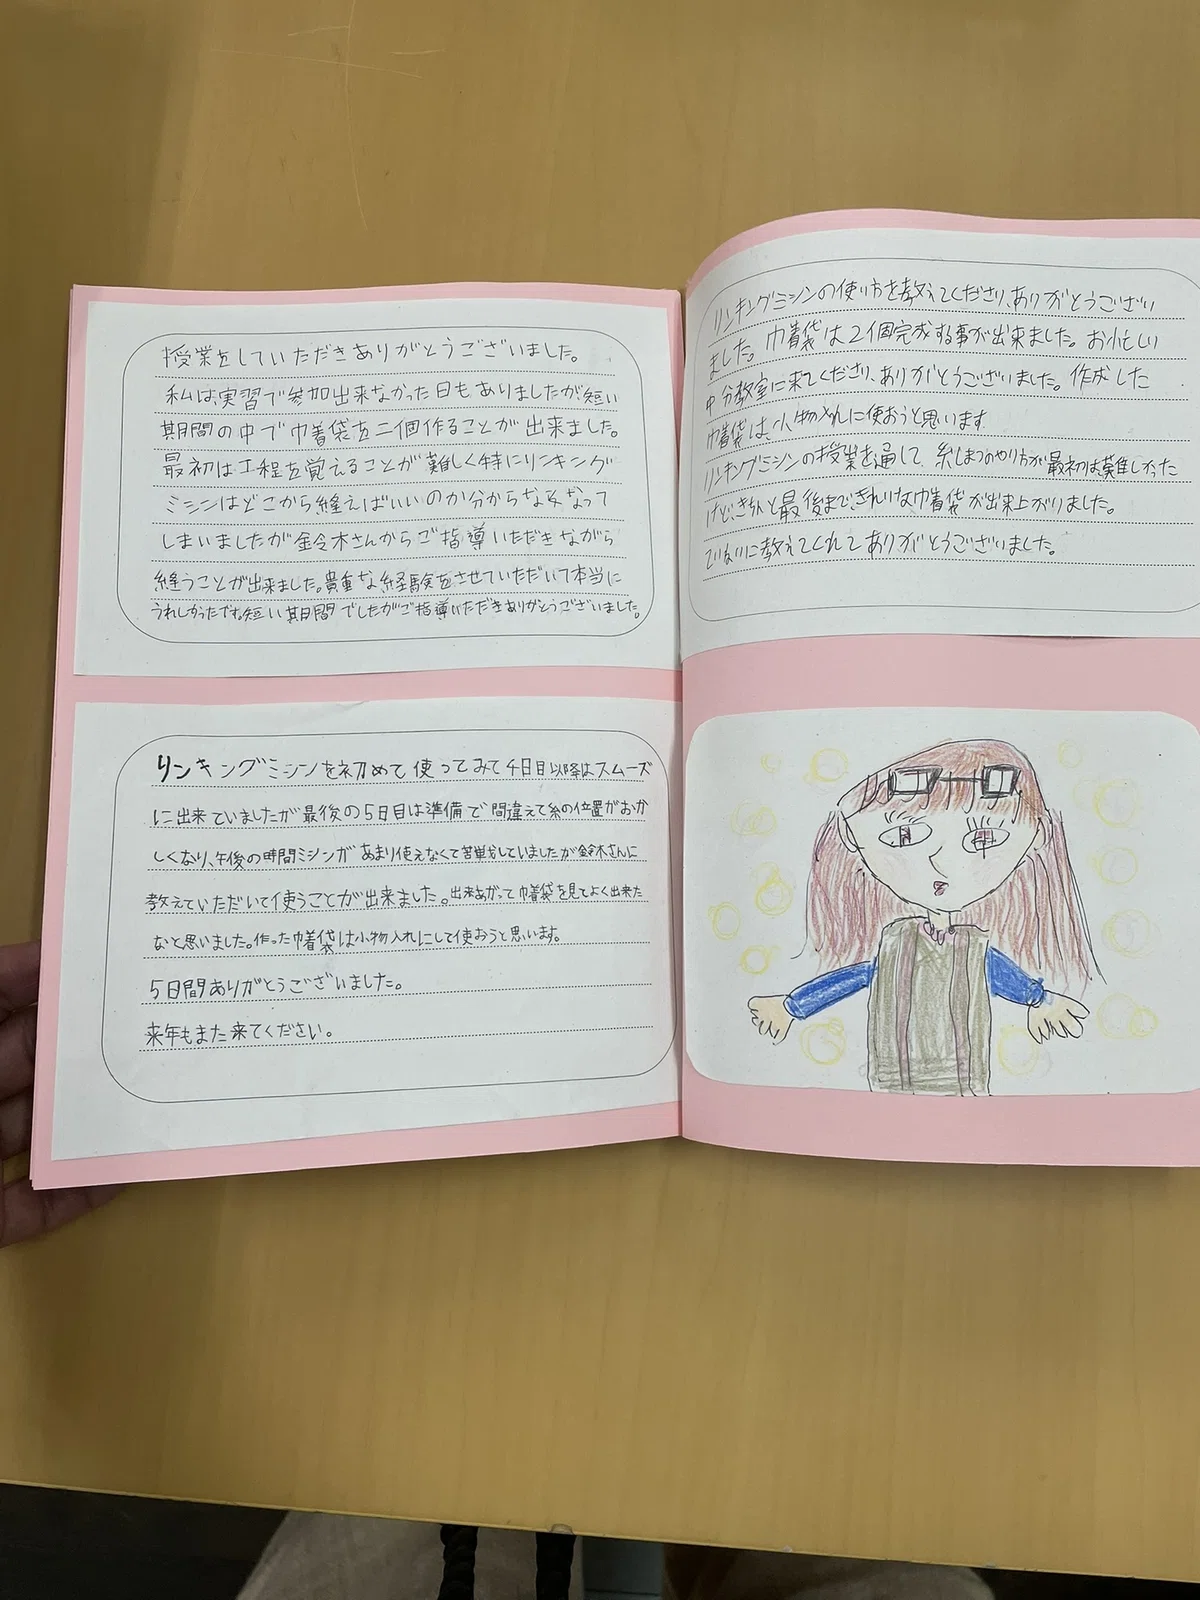 授業をしていただきありがとうございました。
私は、実習で参加出来なかった日もありましたが、短い
期間の中で巾着袋を二個作ることが出来ました。
最初は工程を覚えることが難しく特にリンキング
ミシンはどこから縫えばいいのか分からなくなって
しまいましたが鈴木さんからご指導いただきながら
縫うことが出来ました。貴重な経験をさせていただいて本当に
うれしかったです。短い期間でしたがご指導いただきありがとうございました。
リンキングミシンを初めて使ってみて4日目以降はスムーズ
に出来ていましたが最後の5日目は準備で間違えて糸の位置がおか
しくなり、午後の時間ミシンがあまり使えなくて苦戦していましたが鈴木さんに
教えていただいて使うことが出来ました。出来あがって巾着袋を見てよく出来た
なと思いました。作った巾着袋は小物入れにして使おうと思います。
5日間ありがとうございました。
来年もまた来てください。
リンキングミシンの使い方を教えてくださり、ありがとうござい
ました。巾着袋は2個完成する事が出来ました。お忙しい
中分教室に来てくださり、ありがとうございました。作成した
巾着袋は、小物入れに使おうと思います。
リンキングミシンの授業を通して、糸しまつのやり方が最初は、難しかった
けど、きちんと最後まできれいな巾着袋が出来上がりました。
ていねいに教えてくれてありがとうございました。